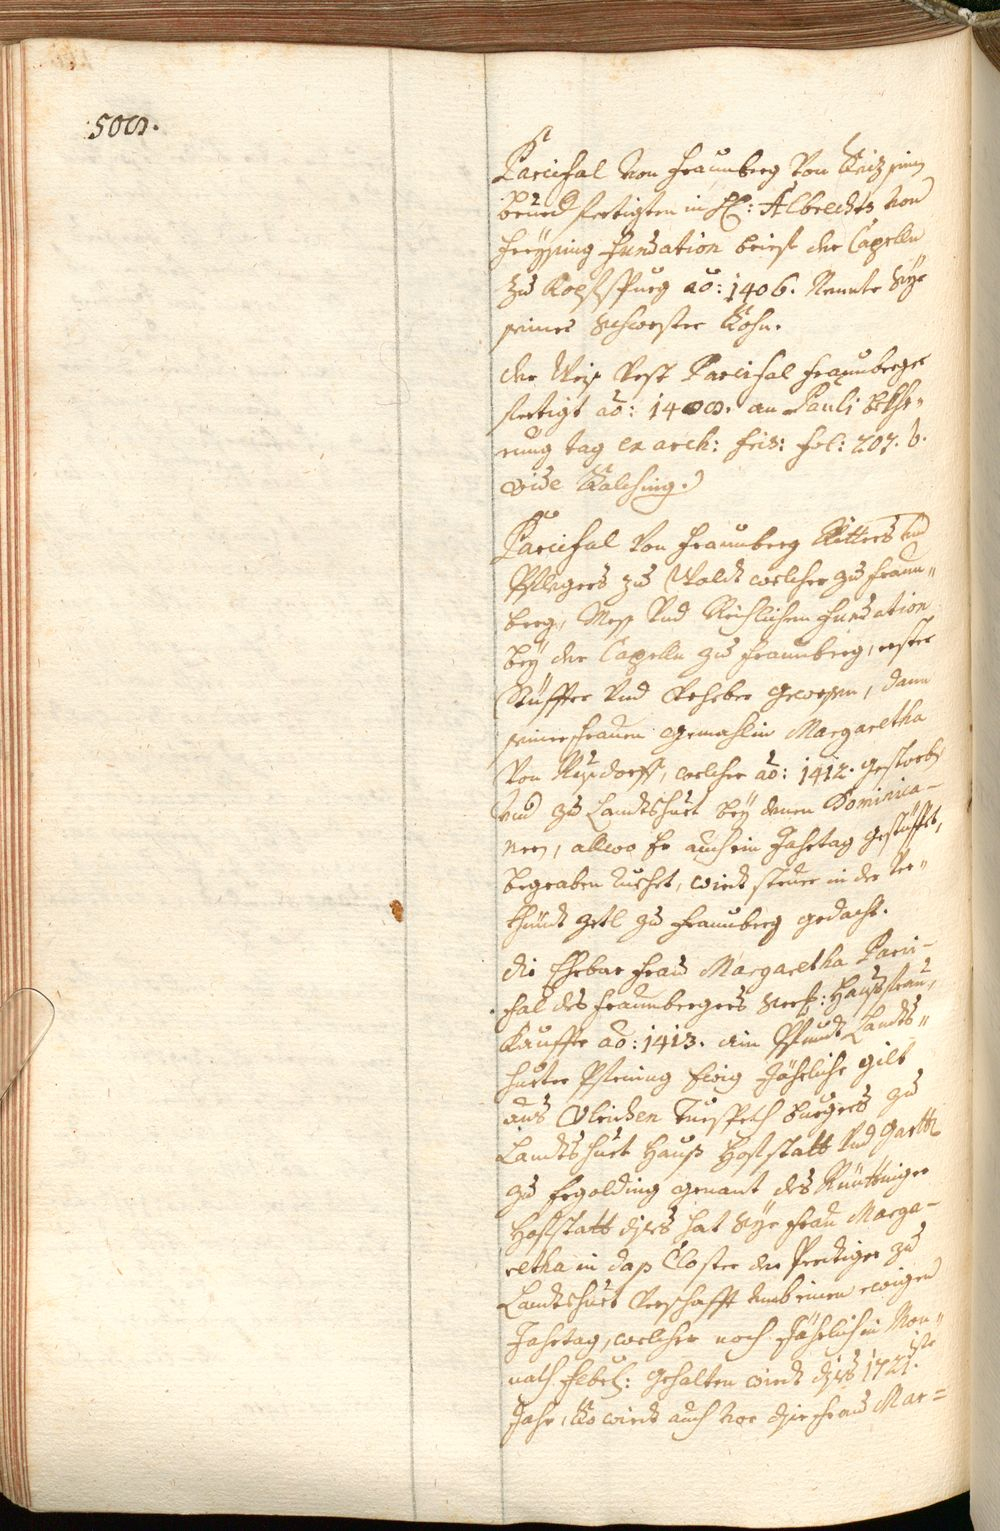 508.
Parcifal von Fraunberg von Haiz seinen
brued fertigten in H: Albrechts von
Freysing Fundation brieff der Capelln
zu Ao: 1406. Nennte Sÿe
seiner Schwester Sohn.
der Weiß Vest Parcifal Fraunberger
fertigt ao: 1408. an Pauli bekhe-
rung tag ex arch: fris: fol: 207. b.
vide Kalching.
Parcifal von Fraunberg Ritters und
Pflegers zu Wald welcher zu Fraun-
berg, Mess Und Reichlichen Fundation
beÿ der Capelln zu Fraunberg, erster
Stüffter Und Urheber gewesen, dann
seiner Frauen gemahlin Margaretha
von Nusdorff, welcher ao: 1412. gestorben
Und zu Landtshuet beÿ denen Dominica-
nern, allwo Er auch ein Jahrtag gestüfft,
begraben Ruehet, wirdt in der Ver-
khündt Zetl zu Fraunberg gedacht.
die Ehrbar Frau Margaretha Parci-
fal des Fraunbergers Seel: Haußfrau,
Kauffte ao: 1413. ain Pfundt Landts-
hueter Pfening Ewig Jährliche gilt
aus Ulrichen burgers zu
Landtshuet Hauß Hoffstatt Und Gartten
zu Ergolding genant des
Hoffstatt diss hat Sÿe Frau Marga-
retha in das Closter der Prediger zu
Landtshuet Verschafft umb einen ewigen
Jahrtag, welcher noch Jährlich in Mon-
nath Febr: gehalten wirdt diss 1721.iste
Jahr, So wirdt auch vor dise Frau Mar=